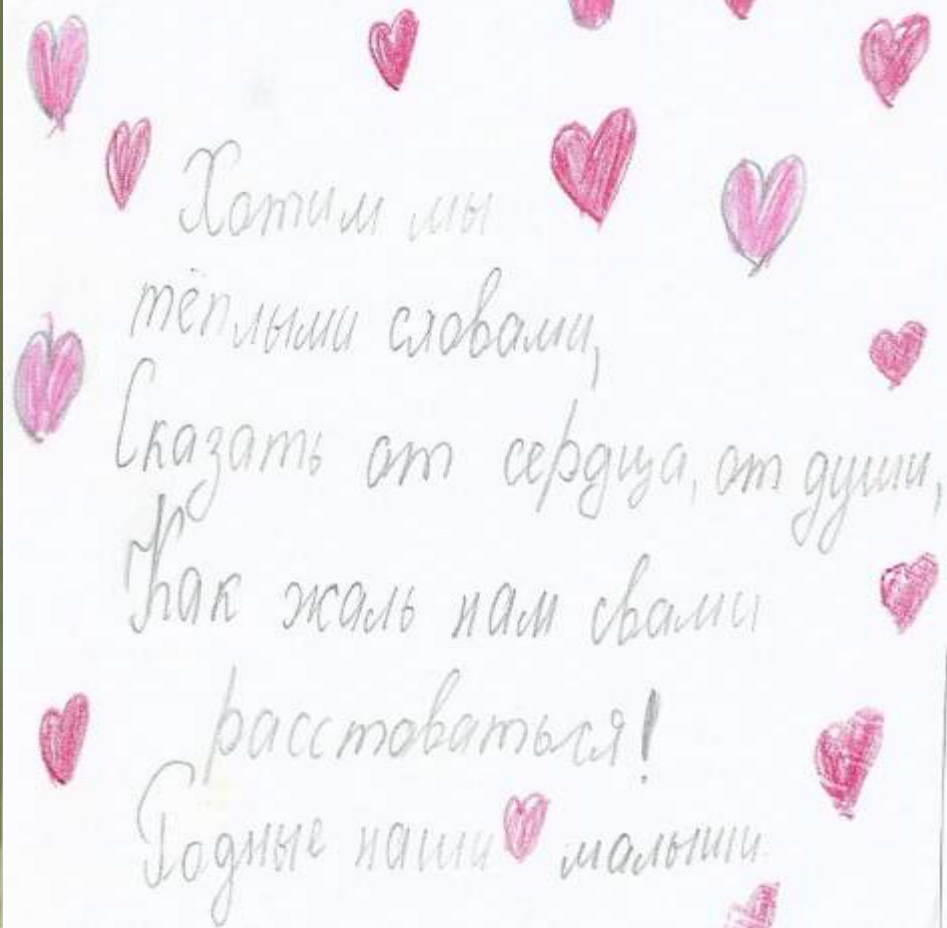 Хотим мы
тёплыми словами,
Сказать от сердца, от души,
Как жаль нам свами
расстоваться!
Родные наши малыши